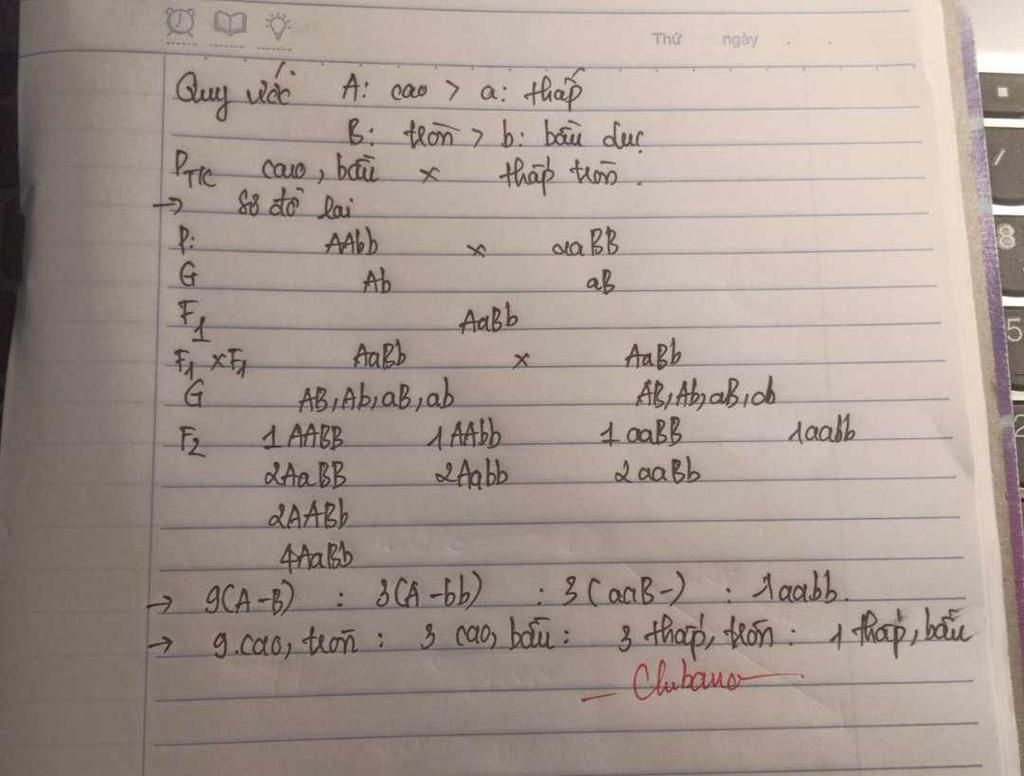 Thứ ngày . .
Quy ước A: cao > a: thấp
B: tròn > b: bầu dục
PT/C cao, bầu x thấp tròn.
→ Sơ đồ lai
P: AAbb x aaBB
G Ab aB
F1 AaBb
F1 x F1 AaBb x AaBb
G AB, Ab, aB, ab AB, Ab, aB, ab
F2 1 AABB 1 AAbb 1 aaBB 1aabb
2AaBB 2Aabb 2 aaBb
2AABb
4AaBb
→ 9(A-B) : 3(A-bb) : 3(aaB-) : 1aabb.
→ 9.cao, tròn : 3 cao, bầu : 3 thấp, tròn : 1 thấp, bầu